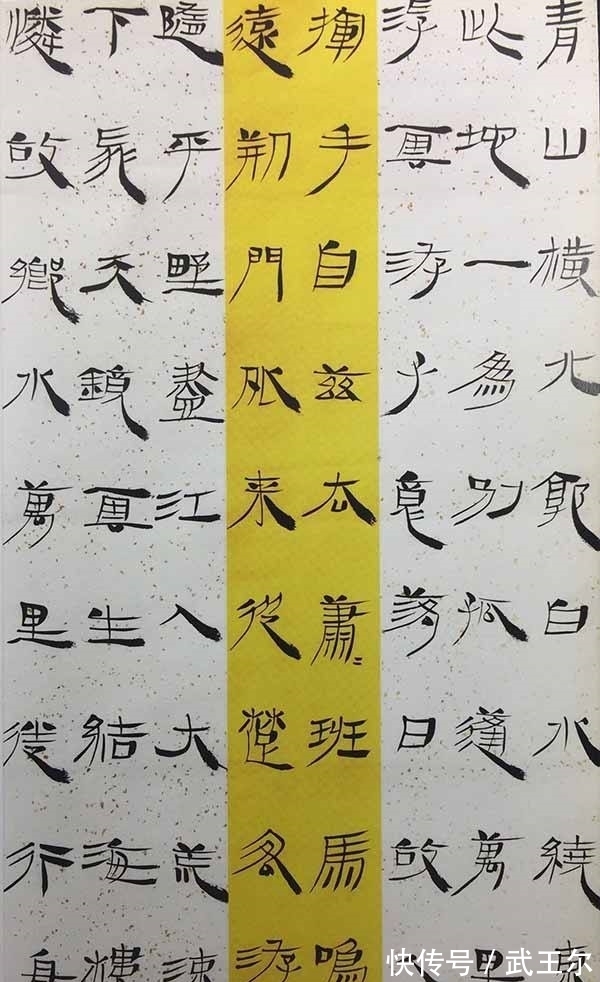 青山橫北郭白水繞東
此地一為別孤蓬萬里
浮雲游子意落日故人
揮手自茲去蕭〻班馬鳴
遠荊門外来從楚國游
隨平野盡江入大荒流
下飛天鏡雲生結海樓
憐故鄉水萬里送行舟
快传号/武王尔